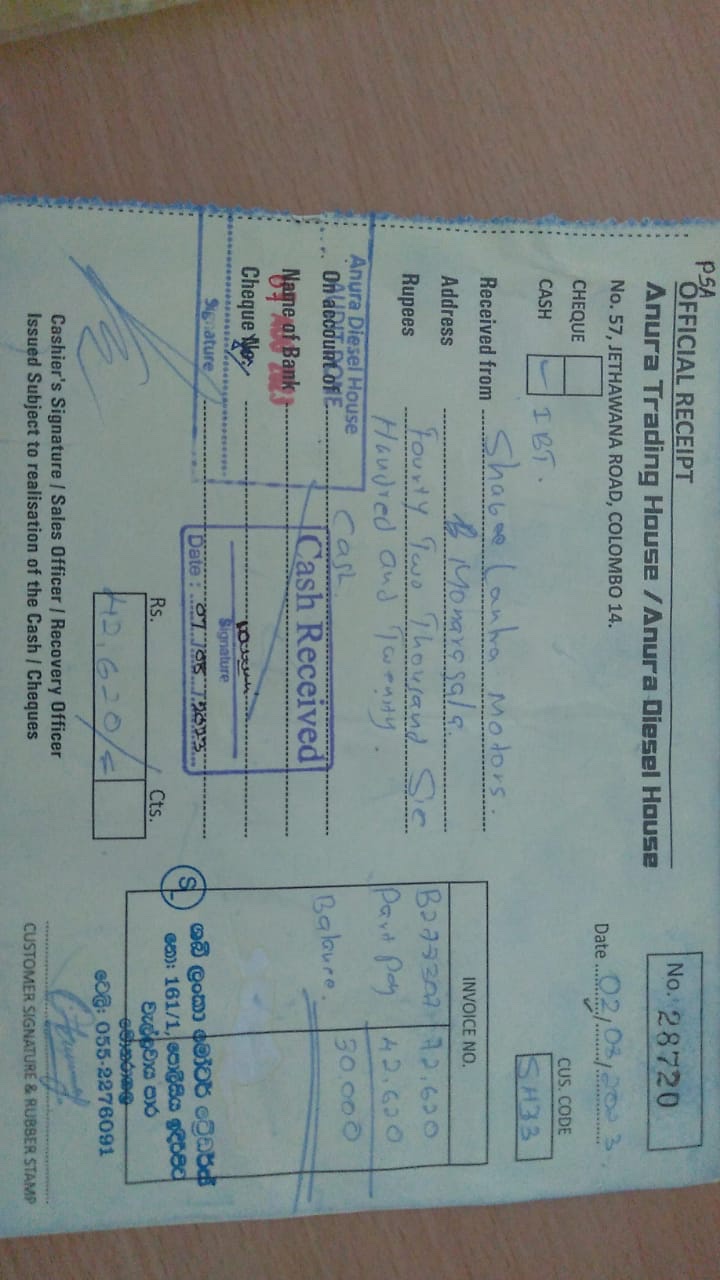 PSA
OFFICIAL RECEIPT
Anura Trading House / Anura Diesel House
No. 57, JETHAWANA ROAD, COLOMBO 14.
No. 28720
Date 02/08/2023.
CHEQUE
CASH IBT.
CUS. CODE
SH33
Received from Lanka Motors.
Address Monaragala.
Rupees Fourty Two Thousand Sic
Hundred and Twenty.
On account of Cash
Name of Bank
Cheque No:
Anura Diesel House
AUDIT DONE
07 AUG 2023
Signature
Cash Received
Signature
Date : 07/08/2023
INVOICE NO.
72,620
Part Pay 42,620
Balance. 30,000
Rs. Cts.
42,620/=
ශබී ලංකා මෝටර් ට්‍රේඩර්ස්
නො: 161/1, පොලීසිය ඉදිරිපිට
පාර
මොණරාගල
ටෙලි: 055-2276091
Cashier's Signature / Sales Officer / Recovery Officer
Issued Subject to realisation of the Cash / Cheques
CUSTOMER SIGNATURE & RUBBER STAMP